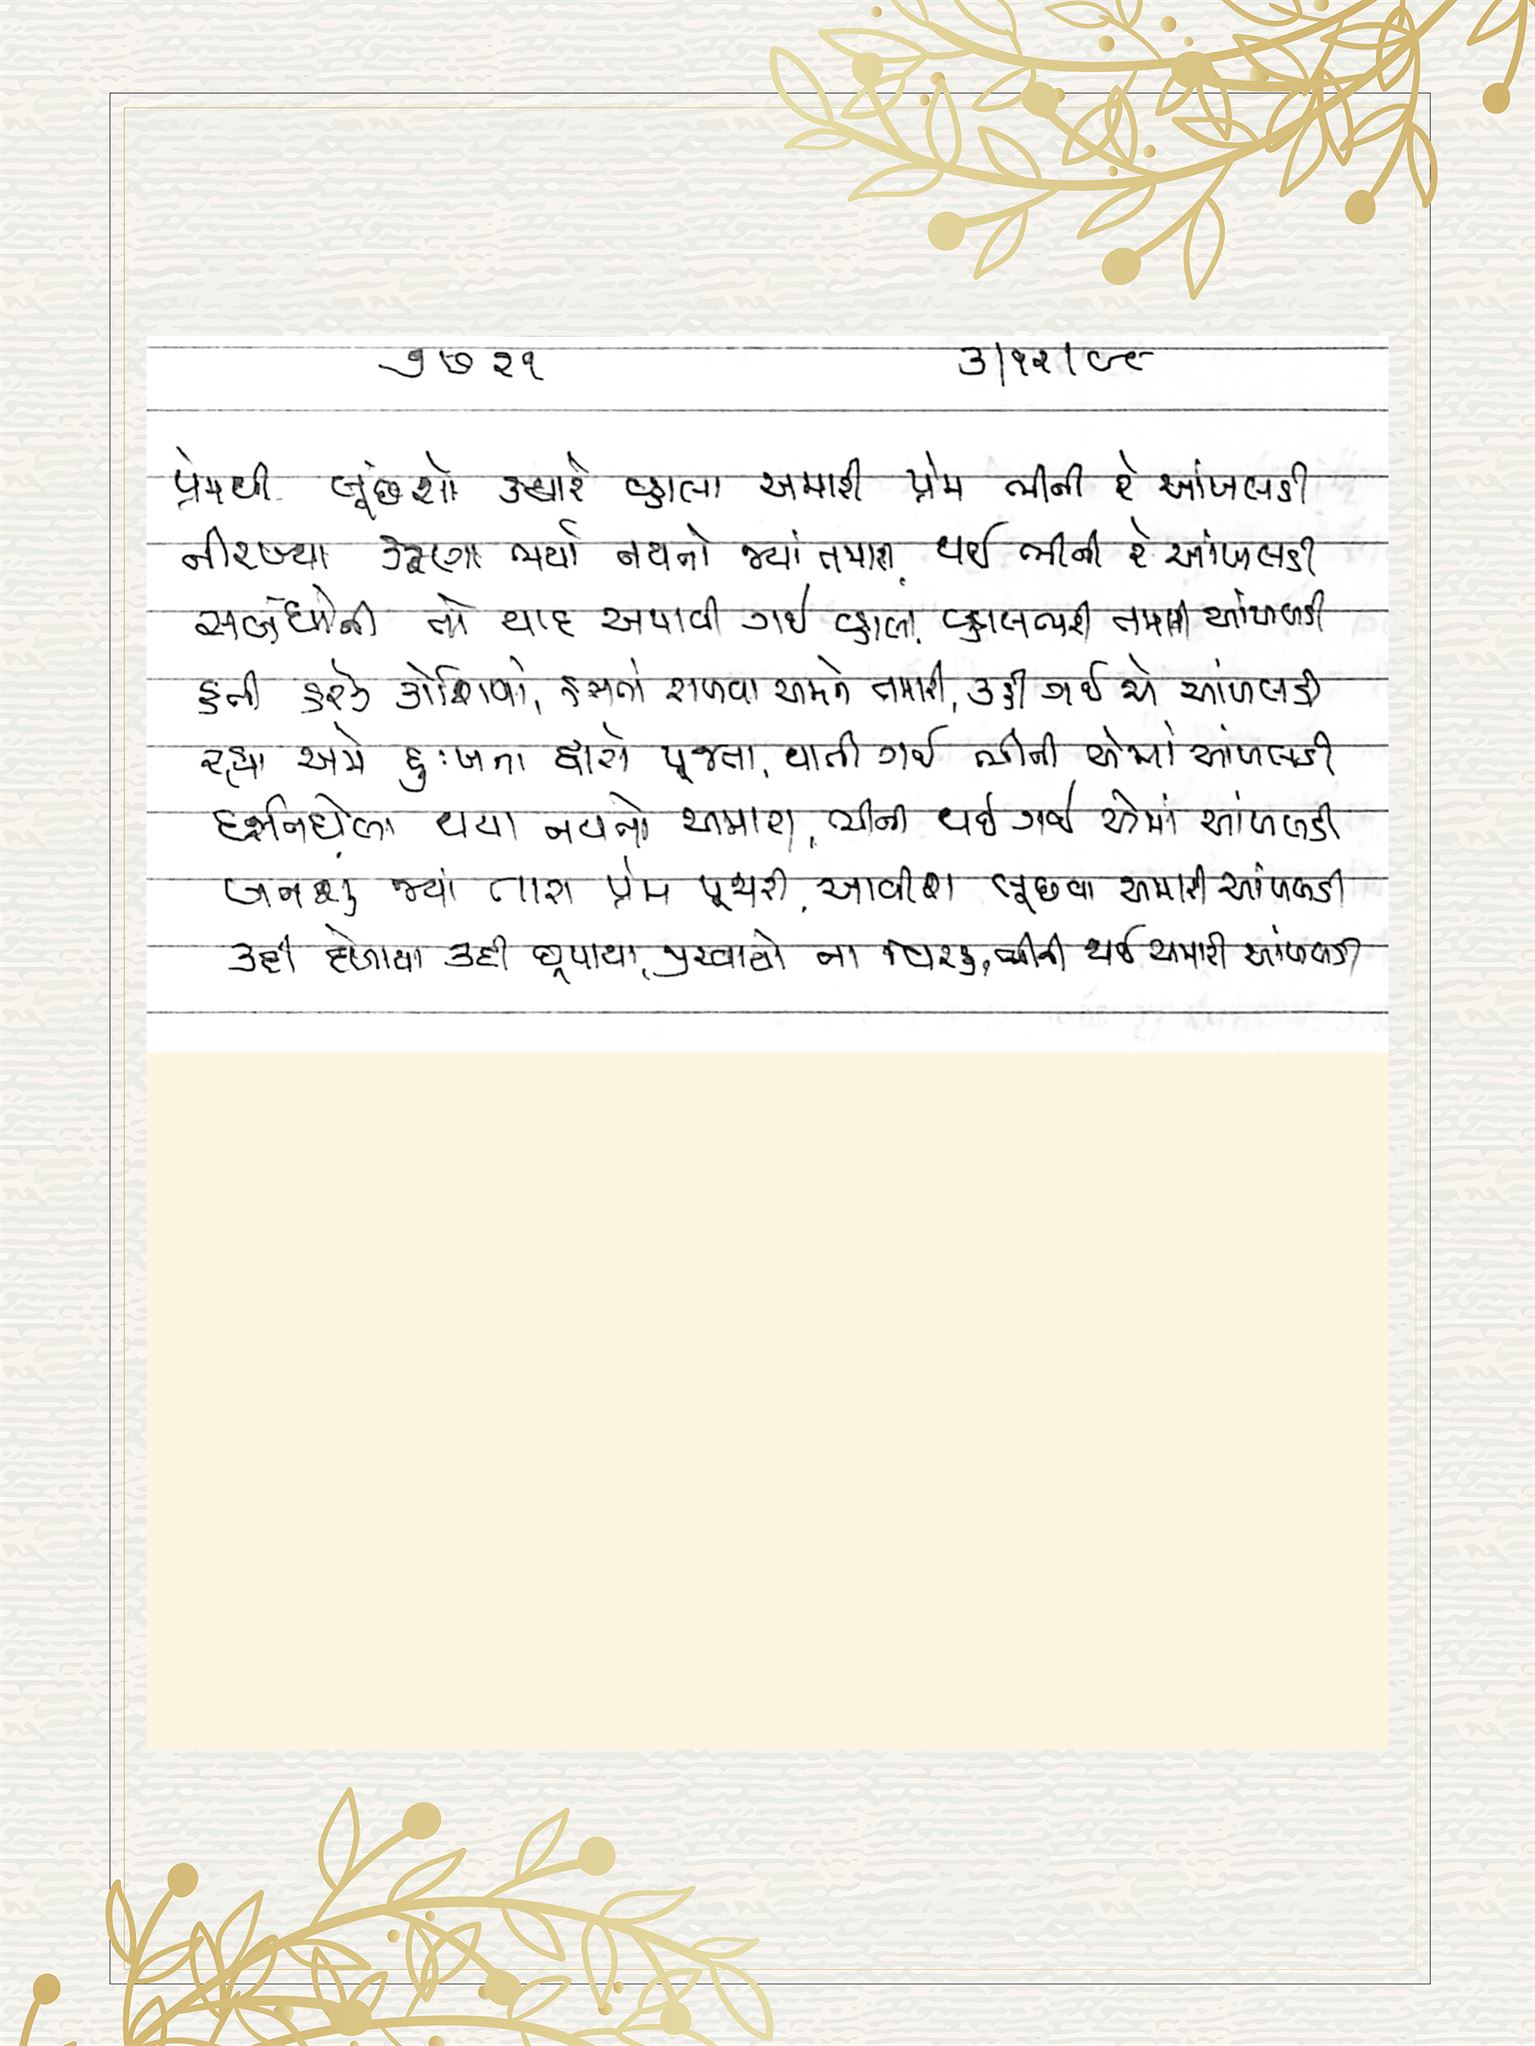 ૭૭૨૧ ૩/૧૨/૯૮
પ્રેમથી લૂંછશો ક્યારે વ્હાલા અમારી પ્રેમ ભીની રે આંખલડી
નીરખ્યા કરૂણા ભર્યા નયનો જ્યાં તમારા, થઈ ભીની રે આંખલડી
સંબંધોની તો યાદ અપાવી ગઈ વ્હાલા, વ્હાલભરી તમારી આંખલડી
હતી હરેક કોશિશો, હસતાં રાખવા અમને તમારી, કહી ગઈ એ આંખલડી
રહ્યા અમે દુઃખના દ્વારો પૂજતા, થાતી ગઈ ભીની એમાં આંખલડી
દર્શનઘેલા થયા નયનો અમારા, ભીની થઈ ગઈ એમાં આંખલડી
બનશું જ્યાં તારા પ્રેમ પૂજારી, આવીશ લૂછવા અમારી આંખલડી
કદી દેખાયા કદી છૂપાયા, પુરવાયો ના વિરહ, ભીની થઈ અમારી આંખલડી